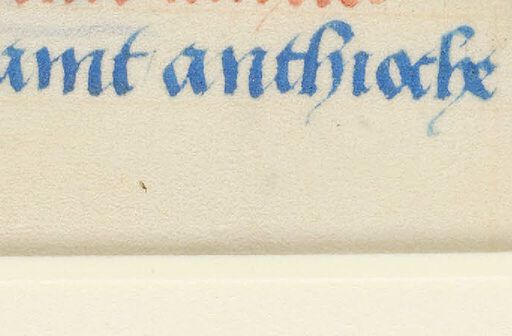 amt anthioche